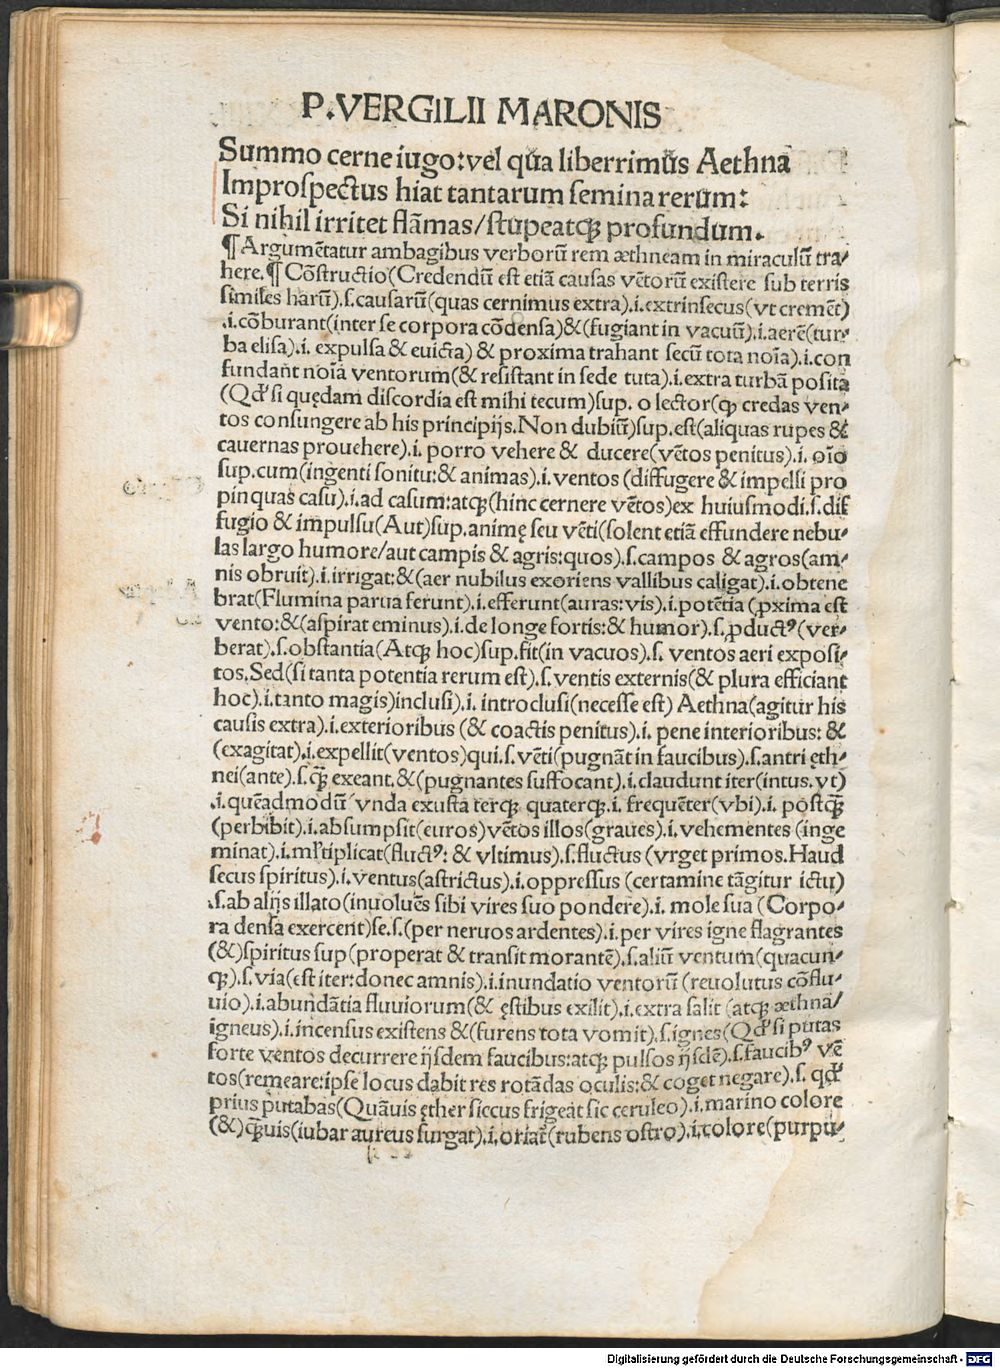 P.VERGILII MARONIS
Summo cerne iugo:vel qua liberrimus Aethna
Improſpectus hiat tantarum ſemina rerum:
Si nihil irritet flāmas/ſtupeatqꝫ profundum.
¶Argumētatur ambagibus verborū rem æthneam in miraculū tra/
here.¶Cōſtructio(Credendū eſt etiā cauſas vētorū exiſtere ſub terris
ſimiles harū).ſ.cauſarū(quas cernimus extra).i.extrinſecus(vt cremēt)
.i.cōburant(inter ſe corpora cōdenſa)&(fugiant in vacuū).i.aerē(tur/
ba eliſa).i. expulſa & euicta) & proxima trahant ſecū tota noīa).i.con
fundant noīa ventorum(& reſiſtant in ſede tuta).i.extra turbā poſita
(Qđ ſi quędam diſcordia eſt mihi tecum)ſup. o lector(ꝙ credas ven/
tos conſungere ab his principijs.Non dubiū)ſup.eſt(aliquas rupes &
cauernas prouehere).i. porro vehere & ducere(vētos penitus).i. oīo
ſup.cum(ingenti ſonitu:& animas).i.ventos (diffugere & impelli pro
pinquas caſu).i.ad caſum:atqꝫ(hinc cernere vētos)ex huiuſmodi.ſ.dif
fugio & impulſu(Aut)ſup.animę ſeu vēti(ſolent etiā effundere nebu/
las largo humore/aut campis & agris:quos).ſ.campos & agros(am/
nis obruit).i.irrigat:&(aer nubilus exoriens vallibus caligat).i.obtene
brat(Flumina parua ferunt).i.efferunt(auras:vis).i.potētia(ꝓxima eſt
vento:&(aſpirat eminus).i.de longe fortis:& humor).ſ.ꝓductꝰ(ver/
berat).ſ.obſtantia(Atqꝫ hoc)ſup.fit(in vacuos).ſ. ventos aeri expoſi/
tos.Sed(ſi tanta potentia rerum eſt).ſ.ventis externis(& plura efficiant
hoc).i.tanto magis)incluſi).i. introcluſi(neceſſe eſt) Aethna(agitur his
cauſis extra).i.exterioribus (& coactis penitus).i. pene interioribus: &
(exagitat).i.expellit(ventos)qui.ſ.vēti(pugnāt in faucibus).ſ.antri ęth/
nei(ante).ſ.qꝫ̄ exeant.&(pugnantes ſuffocant).i.claudunt iter(intus.vt)
.i.quēadmodū vnda exuſta terqꝫ quaterqꝫ.i. frequēter(vbi).i. poſtqꝫ̄
(perbibit).i.abſumpſit(euros)vētos illos(graues).i.vehementes (inge
minat).i.mľtiplicat(fluctꝰ: & vltimus).ſ.fluctus (vrget primos.Haud
ſecus ſpiritus).i.ventus(aſtrictus).i.oppreſſus (certamine tāgitur ictu)
.ſ.ab alijs illato(inuoluēs ſibi vires ſuo pondere).i. mole ſua (Corpo/
ra denſa exercent)ſe.ſ.(per neruos ardentes).i.per vires igne flagrantes
(&)ſpiritus ſup(properat & tranſit morantē).ſ.aliū ventum(quacun/
qꝫ).ſ.via(eſt iter:donec amnis).i.inundatio ventorū (reuolutus cōflu/
uio).i.abundātia fluuiorum(& ęſtibus exilit).i.extra ſalit (atqꝫ æthna/
igneus).i.incenſus exiſtens &(furens tota vomit).ſ.ignes(Qđ ſi putas
forte ventos decurrere ijſdem faucibus:atqꝫ pulſos ijſdē).ſ.faucibꝰ vē
tos(remeare:ipſe locus dabit res rotādas oculis:& coget negare).ſ. qđ
prius putabas(Quāuis ęther ſiccus frigeat ſic ceruleo).i.marino colore
(&)qꝫ̄uis(iubar aureus ſurgat).i.oriať(rubens oſtro).i.colore(purpu/
Digitalisierung gefördert durch die Deutsche Forschungsgemeinschaft - DFG